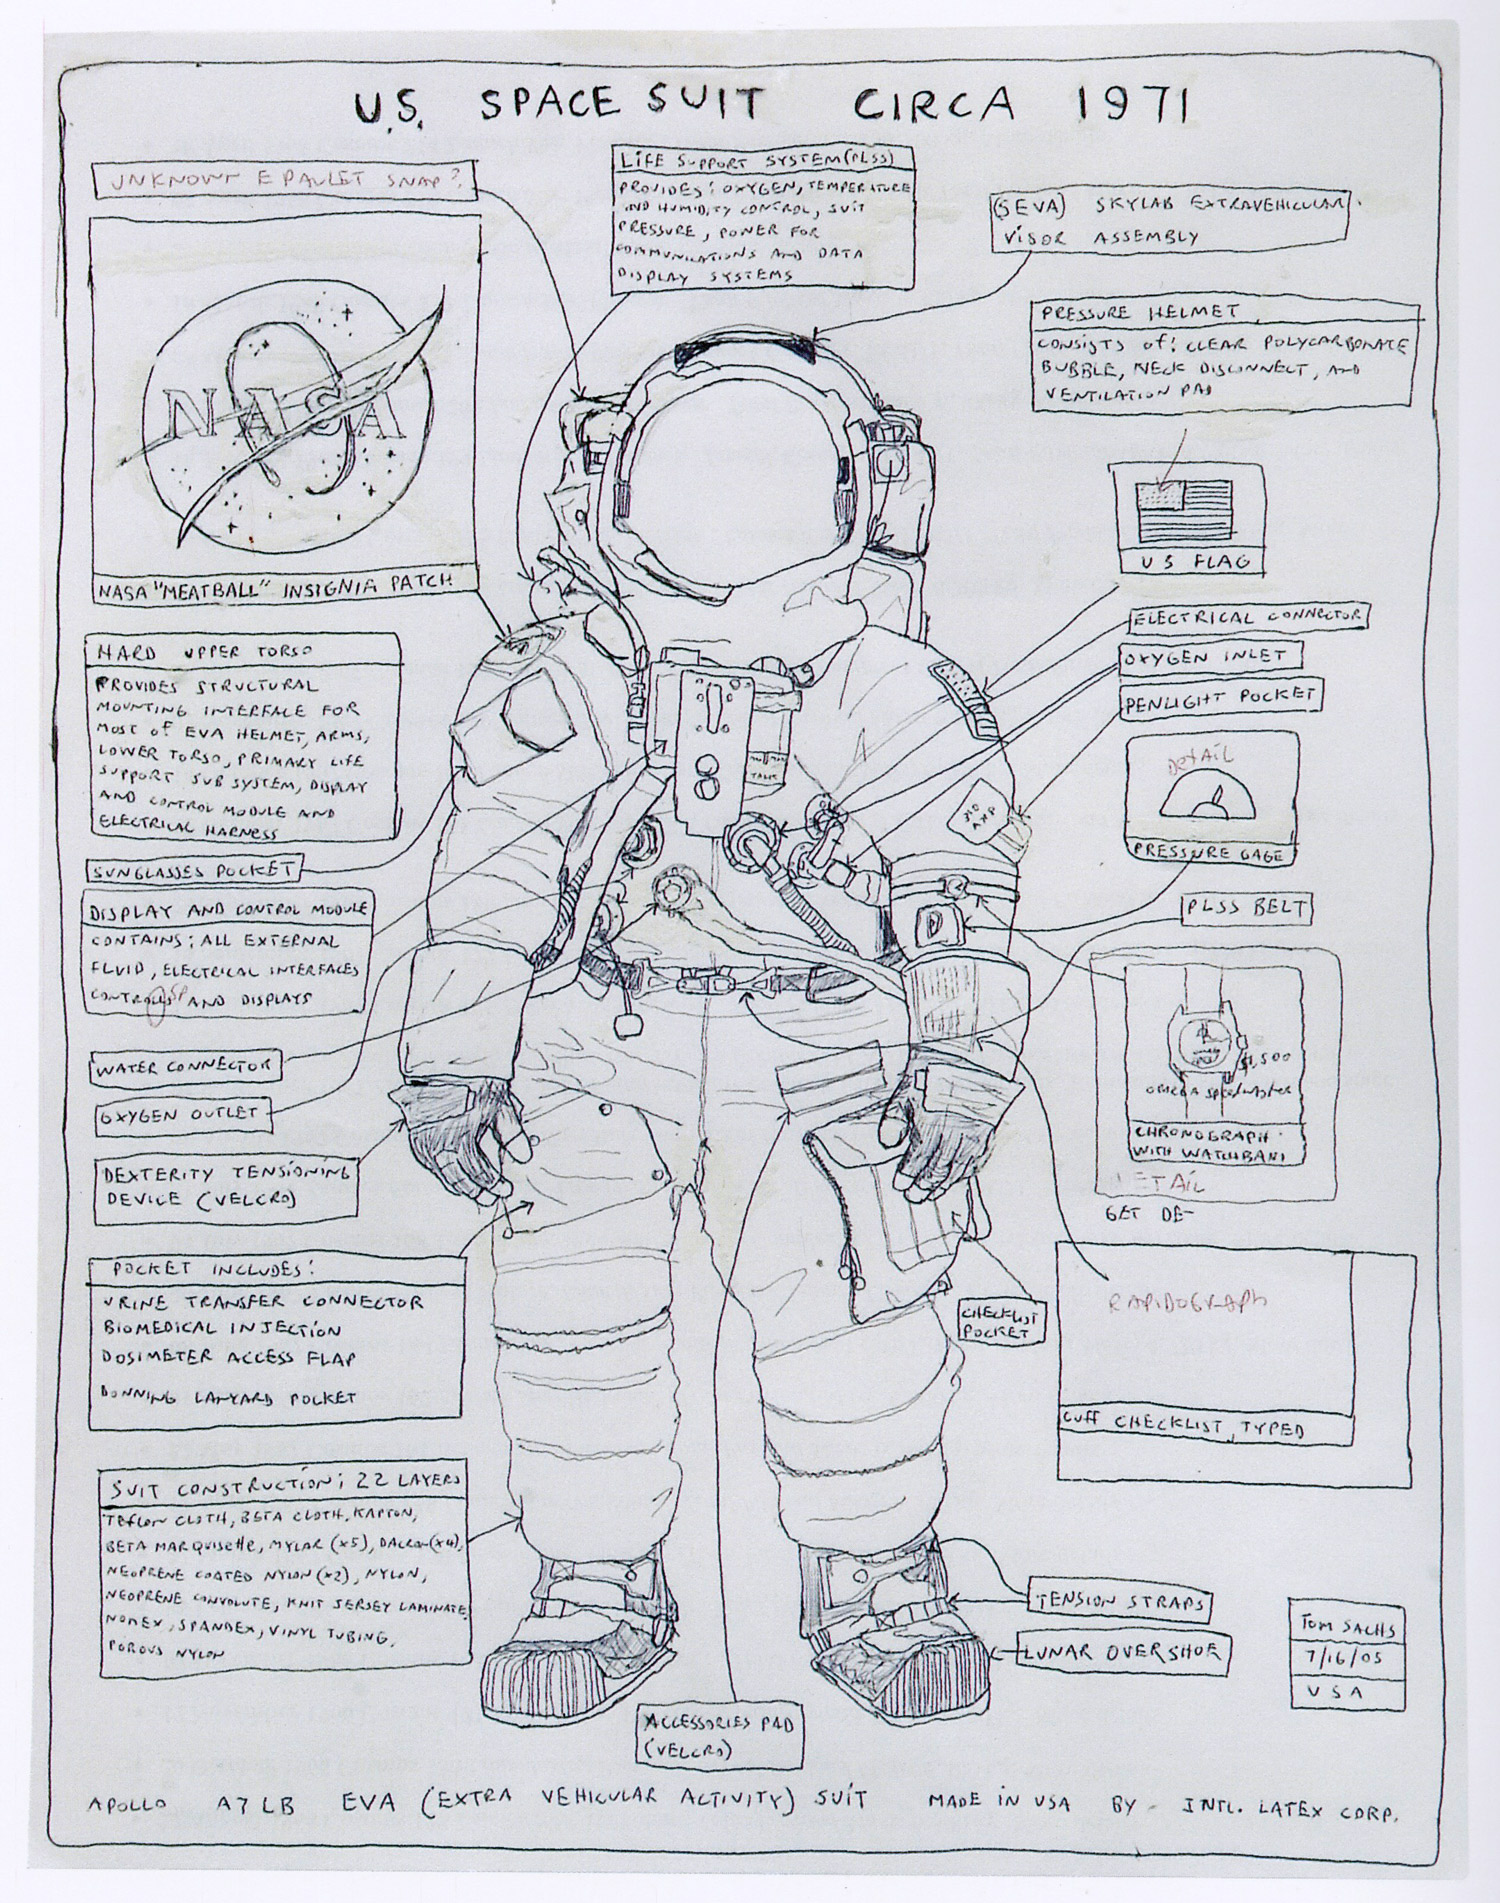 U.S. SPACE SUIT CIRCA 1971
UNKNOWN EPAULET SNAP?
LIFE SUPPORT SYSTEM (PLSS)
PROVIDES: OXYGEN, TEMPERATURE
AND HUMIDITY CONTROL, SUIT
PRESSURE, POWER FOR
COMMUNICATIONS AND DATA
DISPLAY SYSTEMS
(SEVA) SKYLAB EXTRAVEHICULAR
VISOR ASSEMBLY
PRESSURE HELMET
CONSISTS OF: CLEAR POLYCARBONATE
BUBBLE, NECK DISCONNECT, AND
VENTILATION PAD
NASA
NASA "MEATBALL" INSIGNIA PATCH
US FLAG
HARD UPPER TORSO
PROVIDES STRUCTURAL
MOUNTING INTERFACE FOR
MOST OF EVA HELMET, ARMS,
LOWER TORSO, PRIMARY LIFE
SUPPORT SUB SYSTEM, DISPLAY
AND CONTROL MODULE AND
ELECTRICAL HARNESS
ELECTRICAL CONNECTOR
OXYGEN INLET
PENLIGHT POCKET
DETAIL
PRESSURE GAGE
SUNGLASSES POCKET
TALK
DISPLAY AND CONTROL MODULE
CONTAINS: ALL EXTERNAL
FLUID, ELECTRICAL INTERFACES
CONTROLS AND DISPLAYS
PLSS BELT
$1,500
OMEGA SPEEDMASTER
CHRONOGRAPH
WITH WATCHBAND
DETAIL
GET DE-
WATER CONNECTOR
OXYGEN OUTLET
DEXTERITY TENSIONING
DEVICE (VELCRO)
POCKET INCLUDES:
URINE TRANSFER CONNECTOR
BIOMEDICAL INJECTION
DOSIMETER ACCESS FLAP
DONNING LANYARD POCKET
CHECKLIST
POCKET
RAPIDOGRAPH
CUFF CHECKLIST, TYPED
SUIT CONSTRUCTION: 22 LAYERS
TEFLON CLOTH, BETA CLOTH, KAPTON,
BETA MARQUISETTE, MYLAR (x5), DACRON (x4),
NEOPRENE COATED NYLON (x2), NYLON,
NEOPRENE CONVOLUTE, KNIT JERSEY LAMINATE
NOMEX, SPANDEX, VINYL TUBING,
POROUS NYLON
TENSION STRAPS
LUNAR OVERSHOE
TOM SACHS
7/16/05
USA
ACCESSORIES PAD
(VELCRO)
APOLLO A7LB EVA (EXTRA VEHICULAR ACTIVITY) SUIT MADE IN USA BY INTL. LATEX CORP.